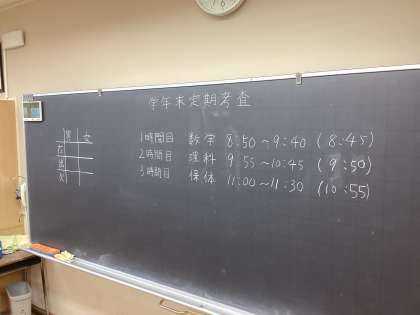 学年末定期考査
男 女
在
出
欠
1時間目 数学 8:50~9:40 (8:45)
2時間目 理科 9:55~10:45 (9:50)
3時間目 保体 11:00~11:30 (10:55)